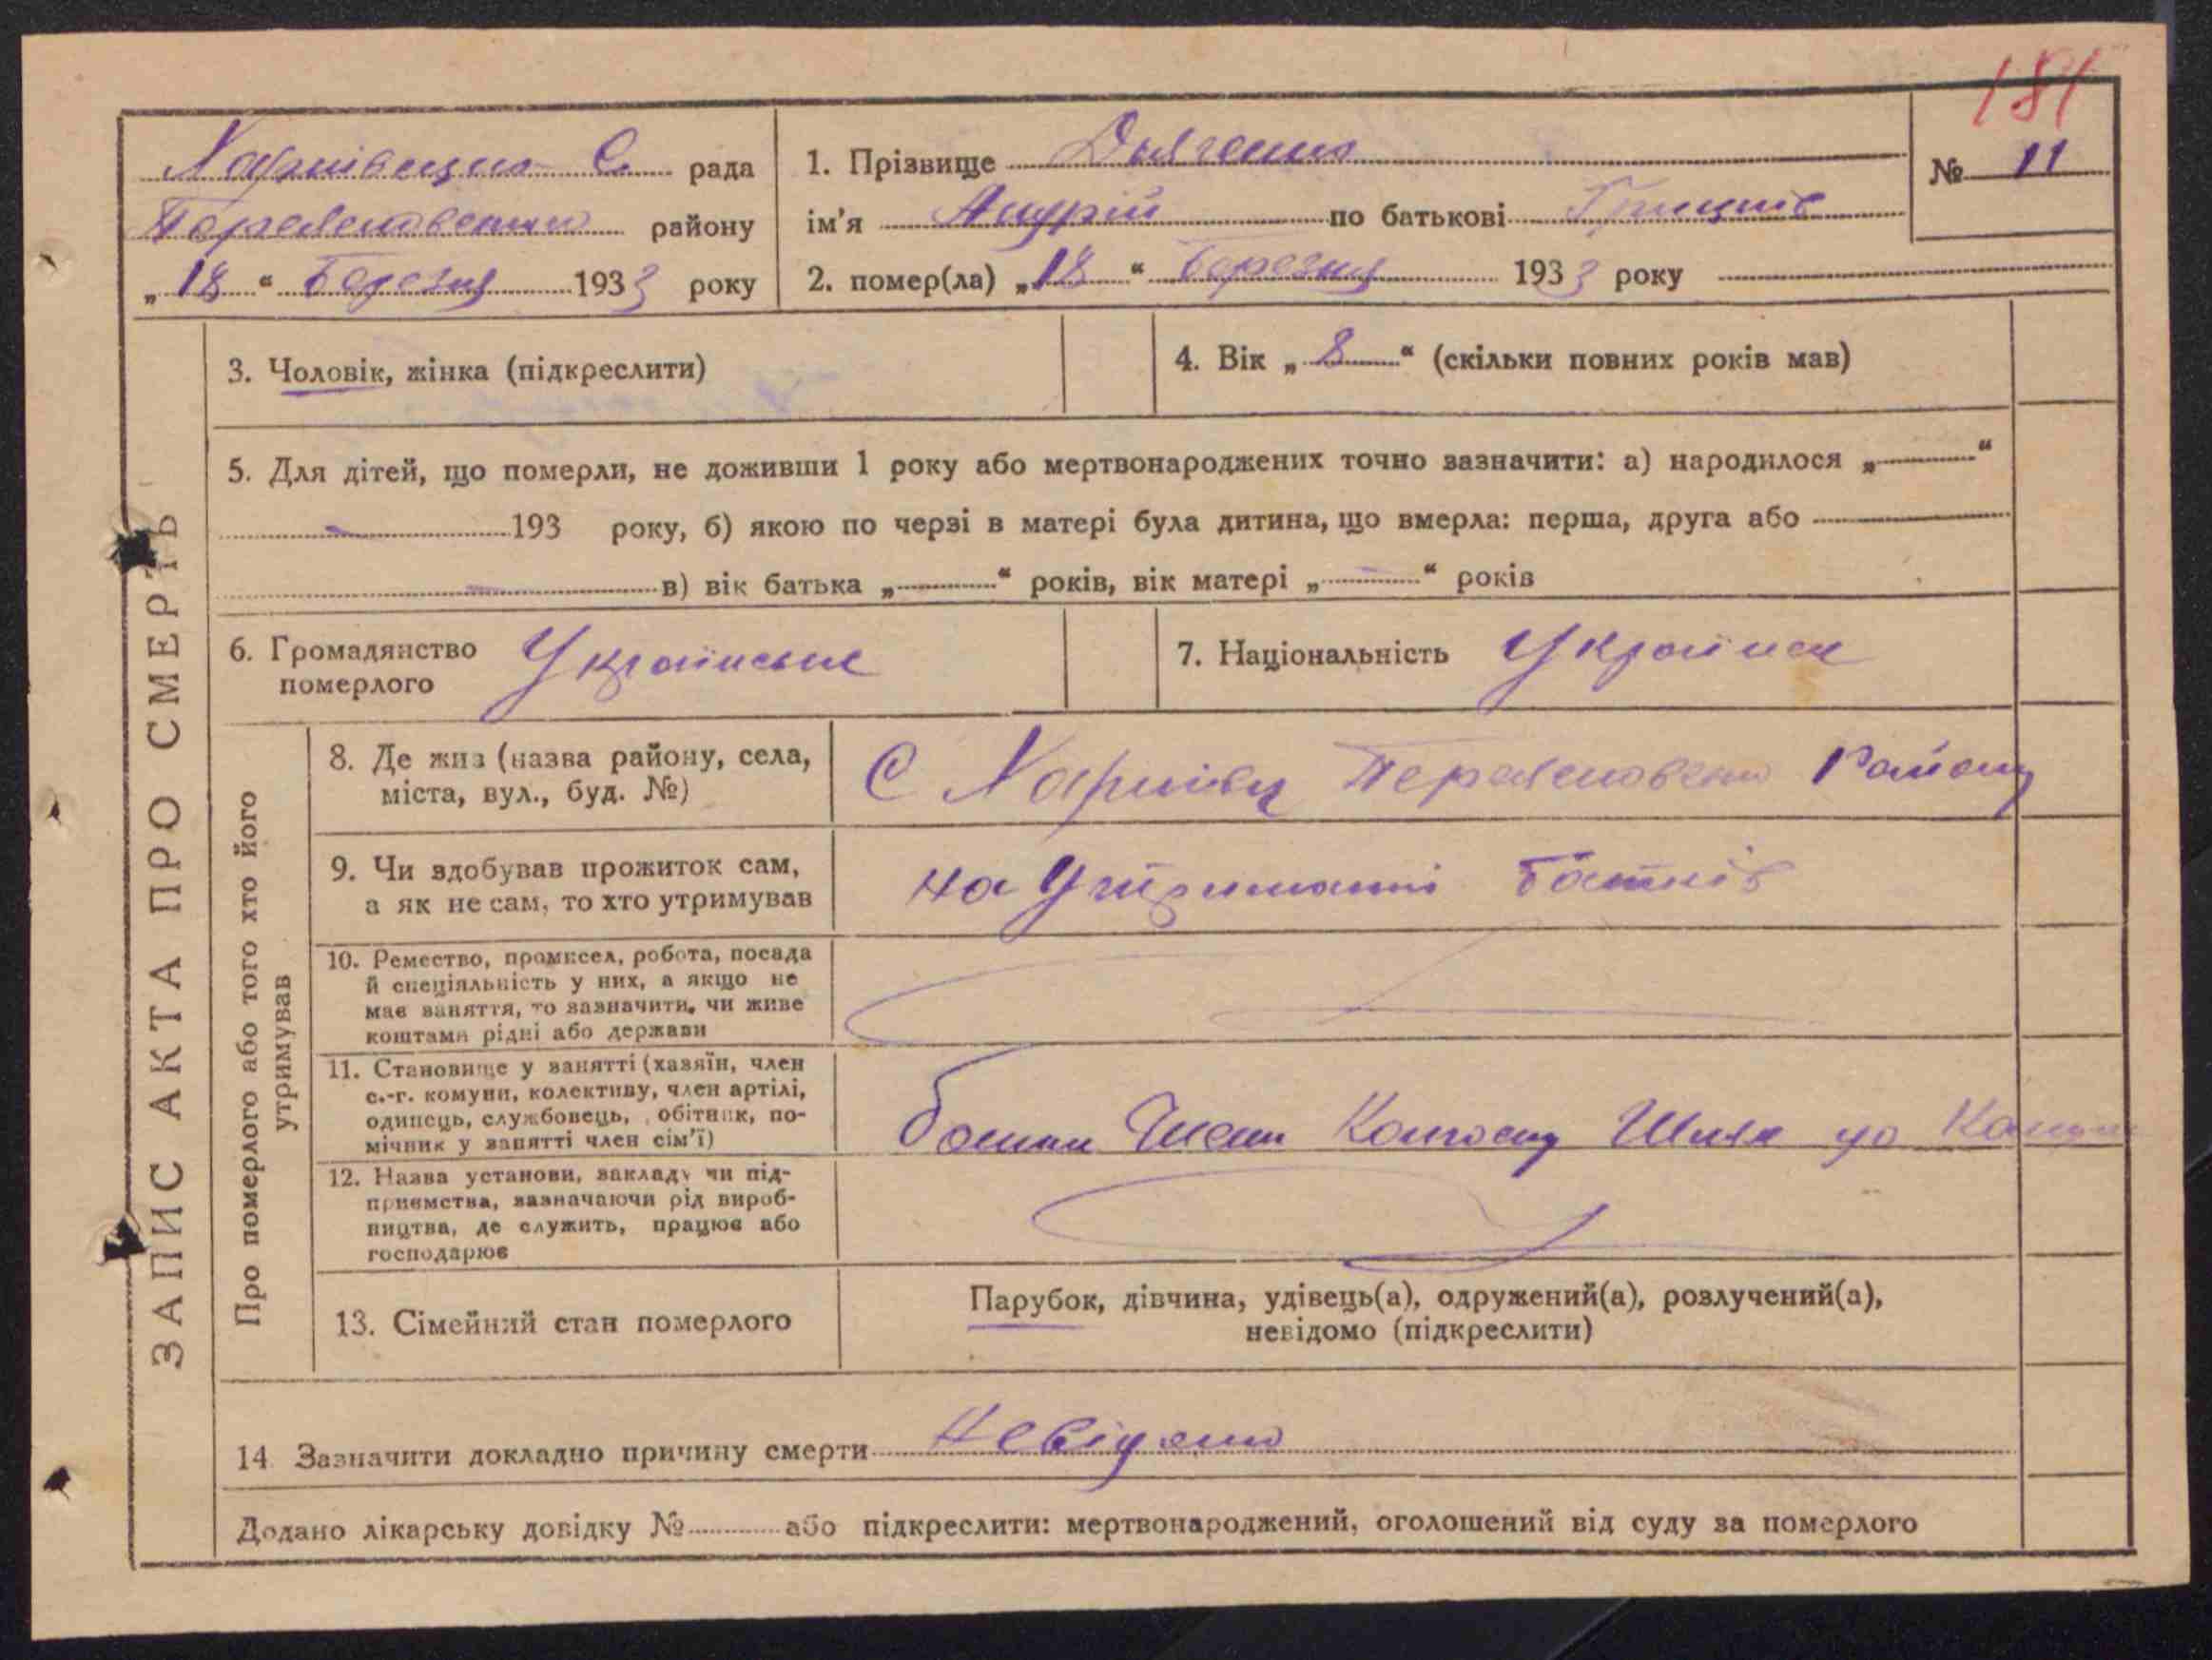 181
Харківецька С. рада
Переяславського району
„18“ Березня 1933 року
1. Прізвище Дьяченко
ім’я Андрій по батькові Грицків
2. помер(ла) „18“ Березня 1933 року
№ 11
ЗАПИС АКТА ПРО СМЕРТЬ
3. Чоловік, жінка (підкреслити)
4. Вік „8“ (скільки повних років мав)
5. Для дітей, що померли, не доживши 1 року або мертвонароджених точно зазначити: а) народилося „ “
193 року, б) якою по черзі в матері була дитина, що вмерла: перша, друга або
в) вік батька „ “ років, вік матері „ “ років
6. Громадянство
померлого
Українське
7. Національність Українец
Про померлого або того хто його
утримував
8. Де жив (назва району, села,
міста, вул., буд. №)
С Харківці Переяславського Району
9. Чи здобував прожиток сам,
а як не сам, то хто утримував
на Утриманні батьків
10. Ремество, промисел, робота, посада
й спеціяльність у них, а якщо не
має заняття, то зазначити, чи живе
коштами рідні або держави
11. Становище у занятті (хазяїн, член
с.-г. комуни, колективу, член артілі,
одинець, службовець, обітник, по-
мічник у занятті член сім’ї)
Батьки Члени Колгоспу Шлях до
12. Назва установи, закладу чи під-
приємства, зазначаючи рід вироб-
ництва, де служить, працює або
господарює
13. Сімейний стан померлого
Парубок, дівчина, удівець(а), одружений(а), розлучений(а),
невідомо (підкреслити)
14 Зазначити докладно причину смерти Невідомо
Додано лікарську довідку № або підкреслити: мертвонароджений, оголошений від суду за померлого